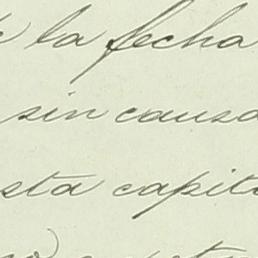 la fecha
sin causa
sta capit